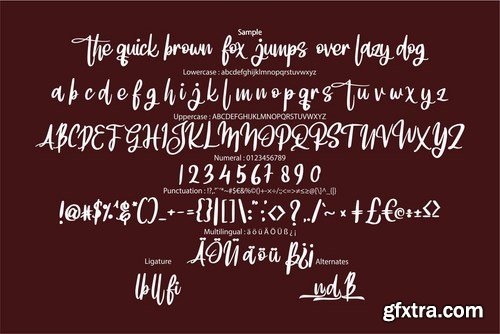 Sample
the quick brown fox jumps over lazy dog
Lowercase : abcdefghijklmnopqrstuvwxyz
a b c d e f g h i j k l m n o p q r s t u v w x y z
Uppercase : ABCDEFGHIJKLMNOPQRSTUVWXYZ
ABCDEFGHIJKLMNOPQRSTUVWXYZ
Numeral : 0123456789
1234567890
Punctuation :
Multilingual : ä ö ü Ä Ö Ü ß ¿ ¡
ÄÖÜäöüß¿¡
Ligature
Alternates
lb ll fi
nd. B
gfxtra.com